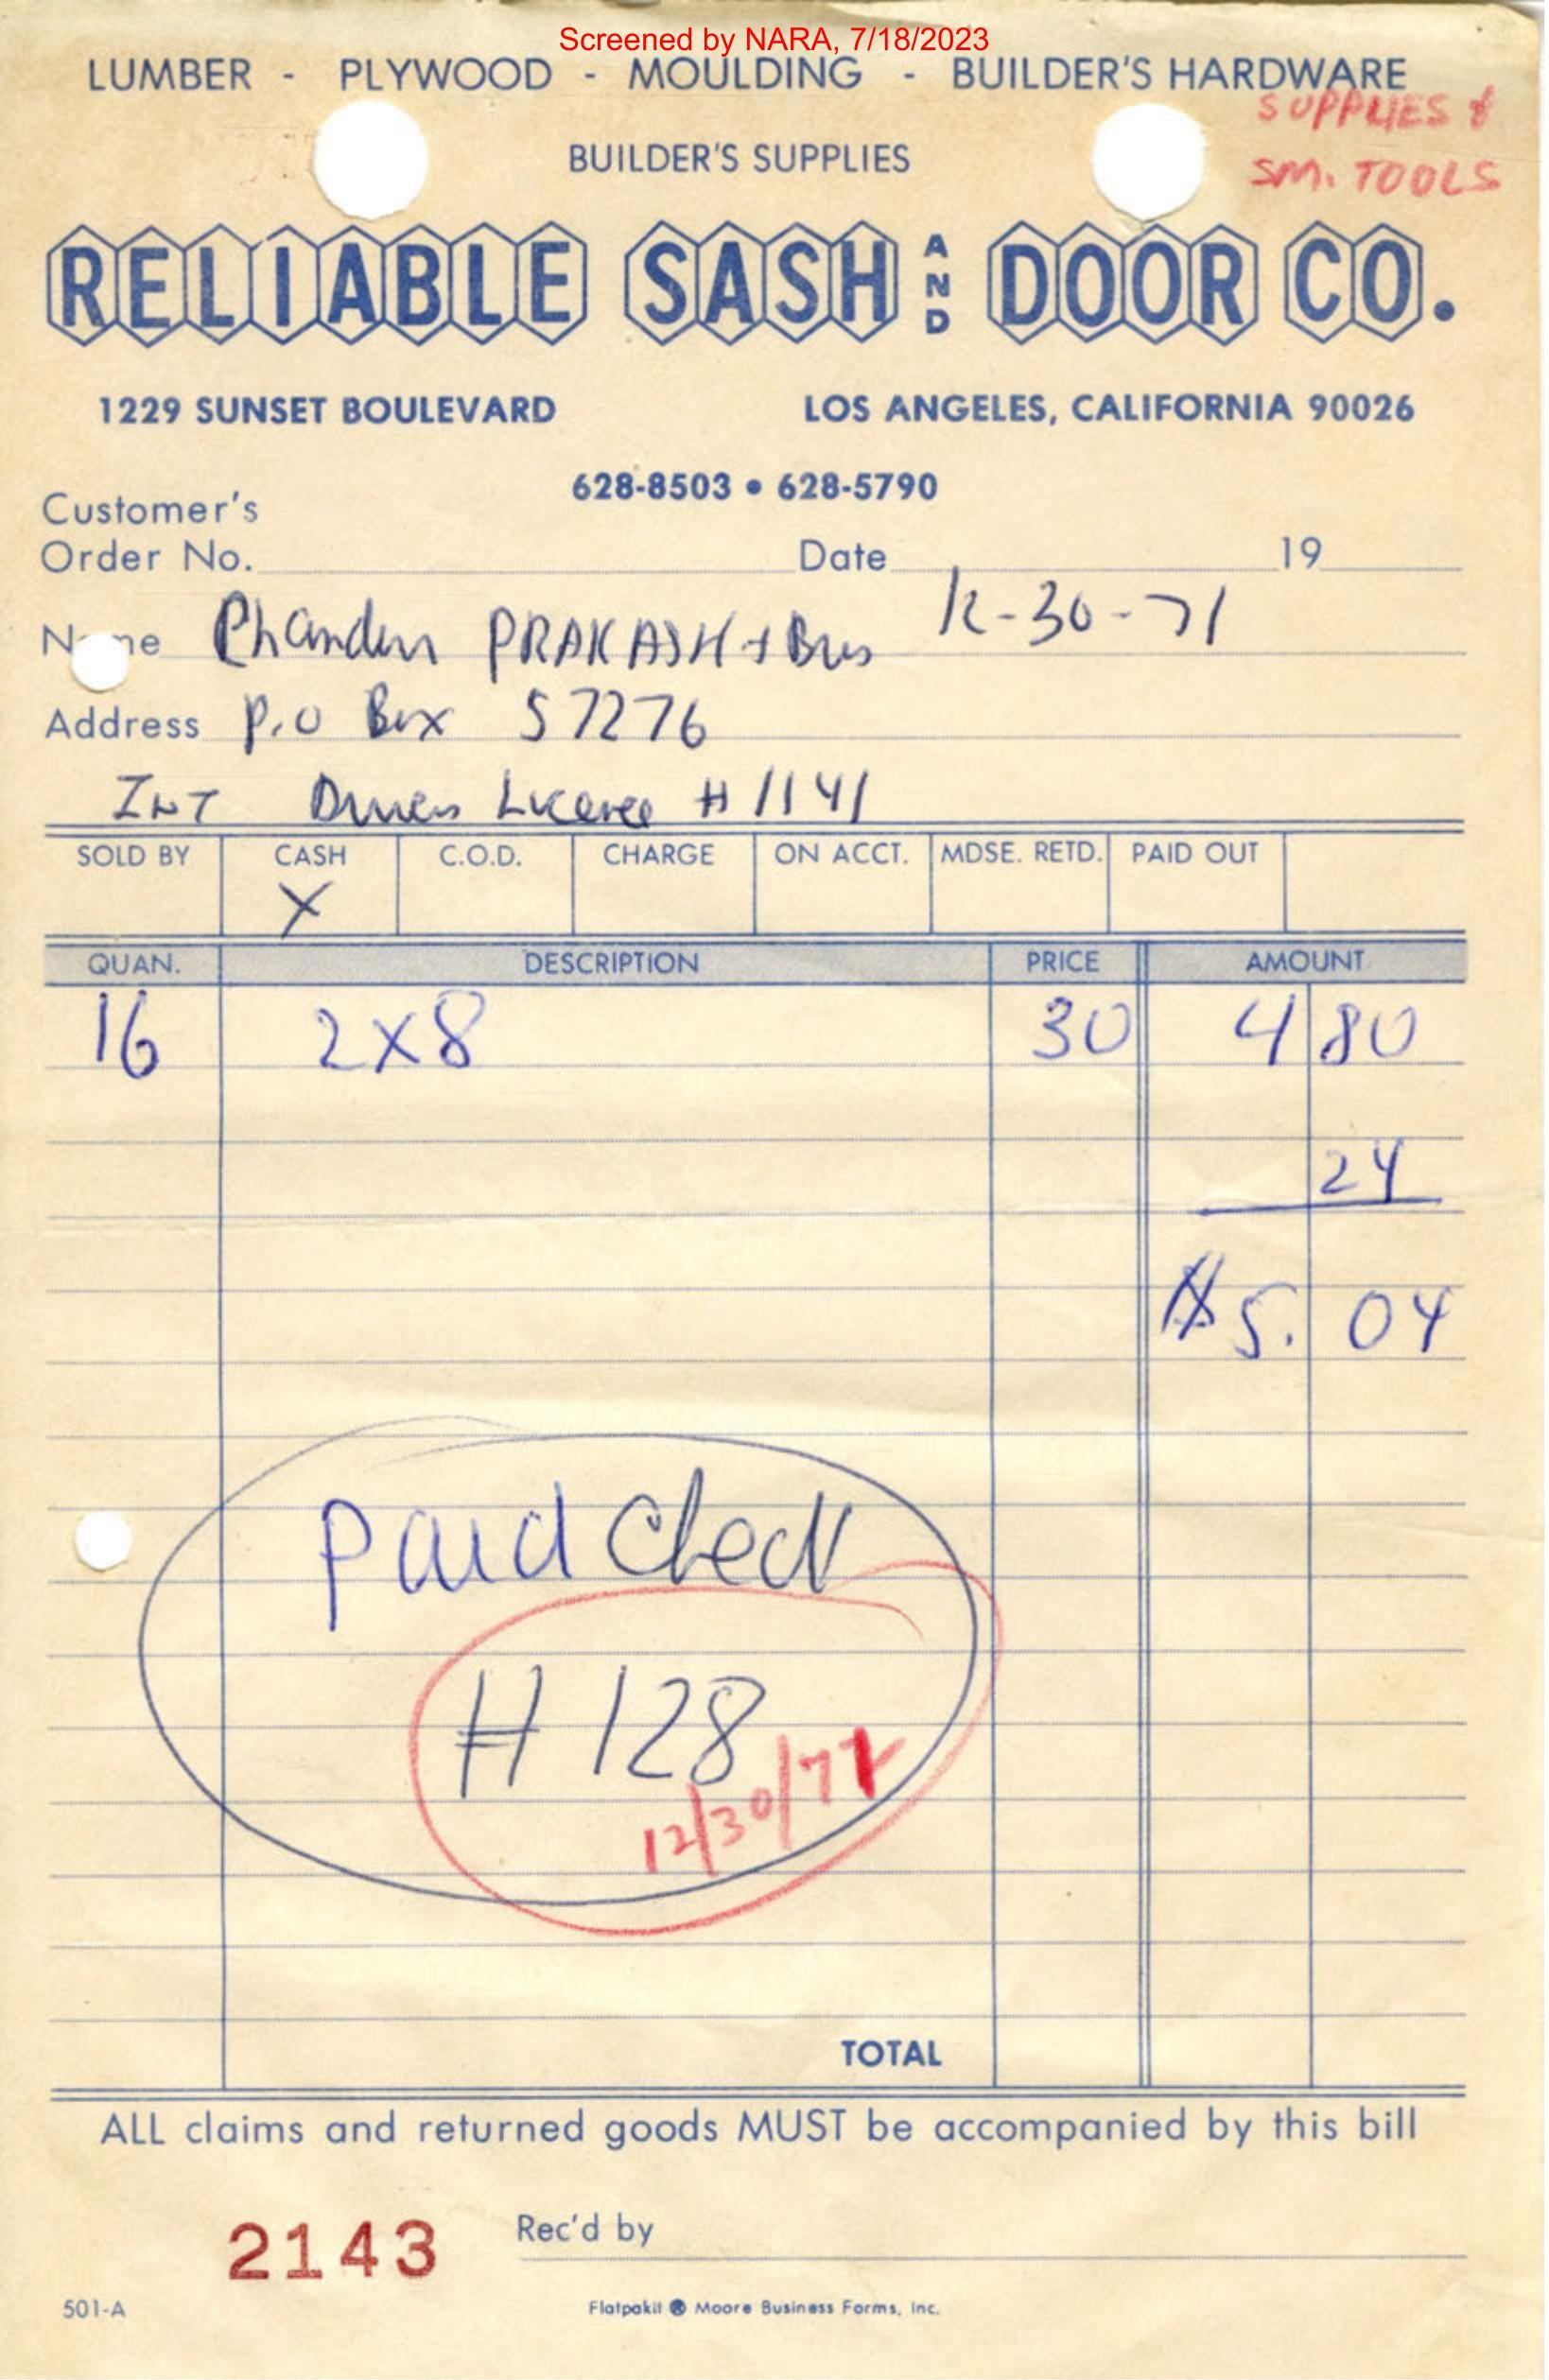 Screened by NARA, 7/18/2023
LUMBER - PLYWOOD - MOULDING - BUILDER'S HARDWARE
SUPPLIES &
BUILDER'S SUPPLIES
SM. TOOLS
RELIABLE SASH AND DOOR CO.
1229 SUNSET BOULEVARD LOS ANGELES, CALIFORNIA 90026
628-8503 • 628-5790
Customer's
Order No. Date 19
12-30-71
Name PRAKASH + Bros
Address P.O Box 57276
INT Drivers License # 1141
SOLD BY CASH C.O.D. CHARGE ON ACCT. MDSE. RETD. PAID OUT
X
QUAN. DESCRIPTION PRICE AMOUNT
16 2x8 30 4 80
24
$5. 04
paid Check
# 128
12/30/71
TOTAL
ALL claims and returned goods MUST be accompanied by this bill
2143 Rec'd by
501-A Flatpakit ® Moore Business Forms, Inc.